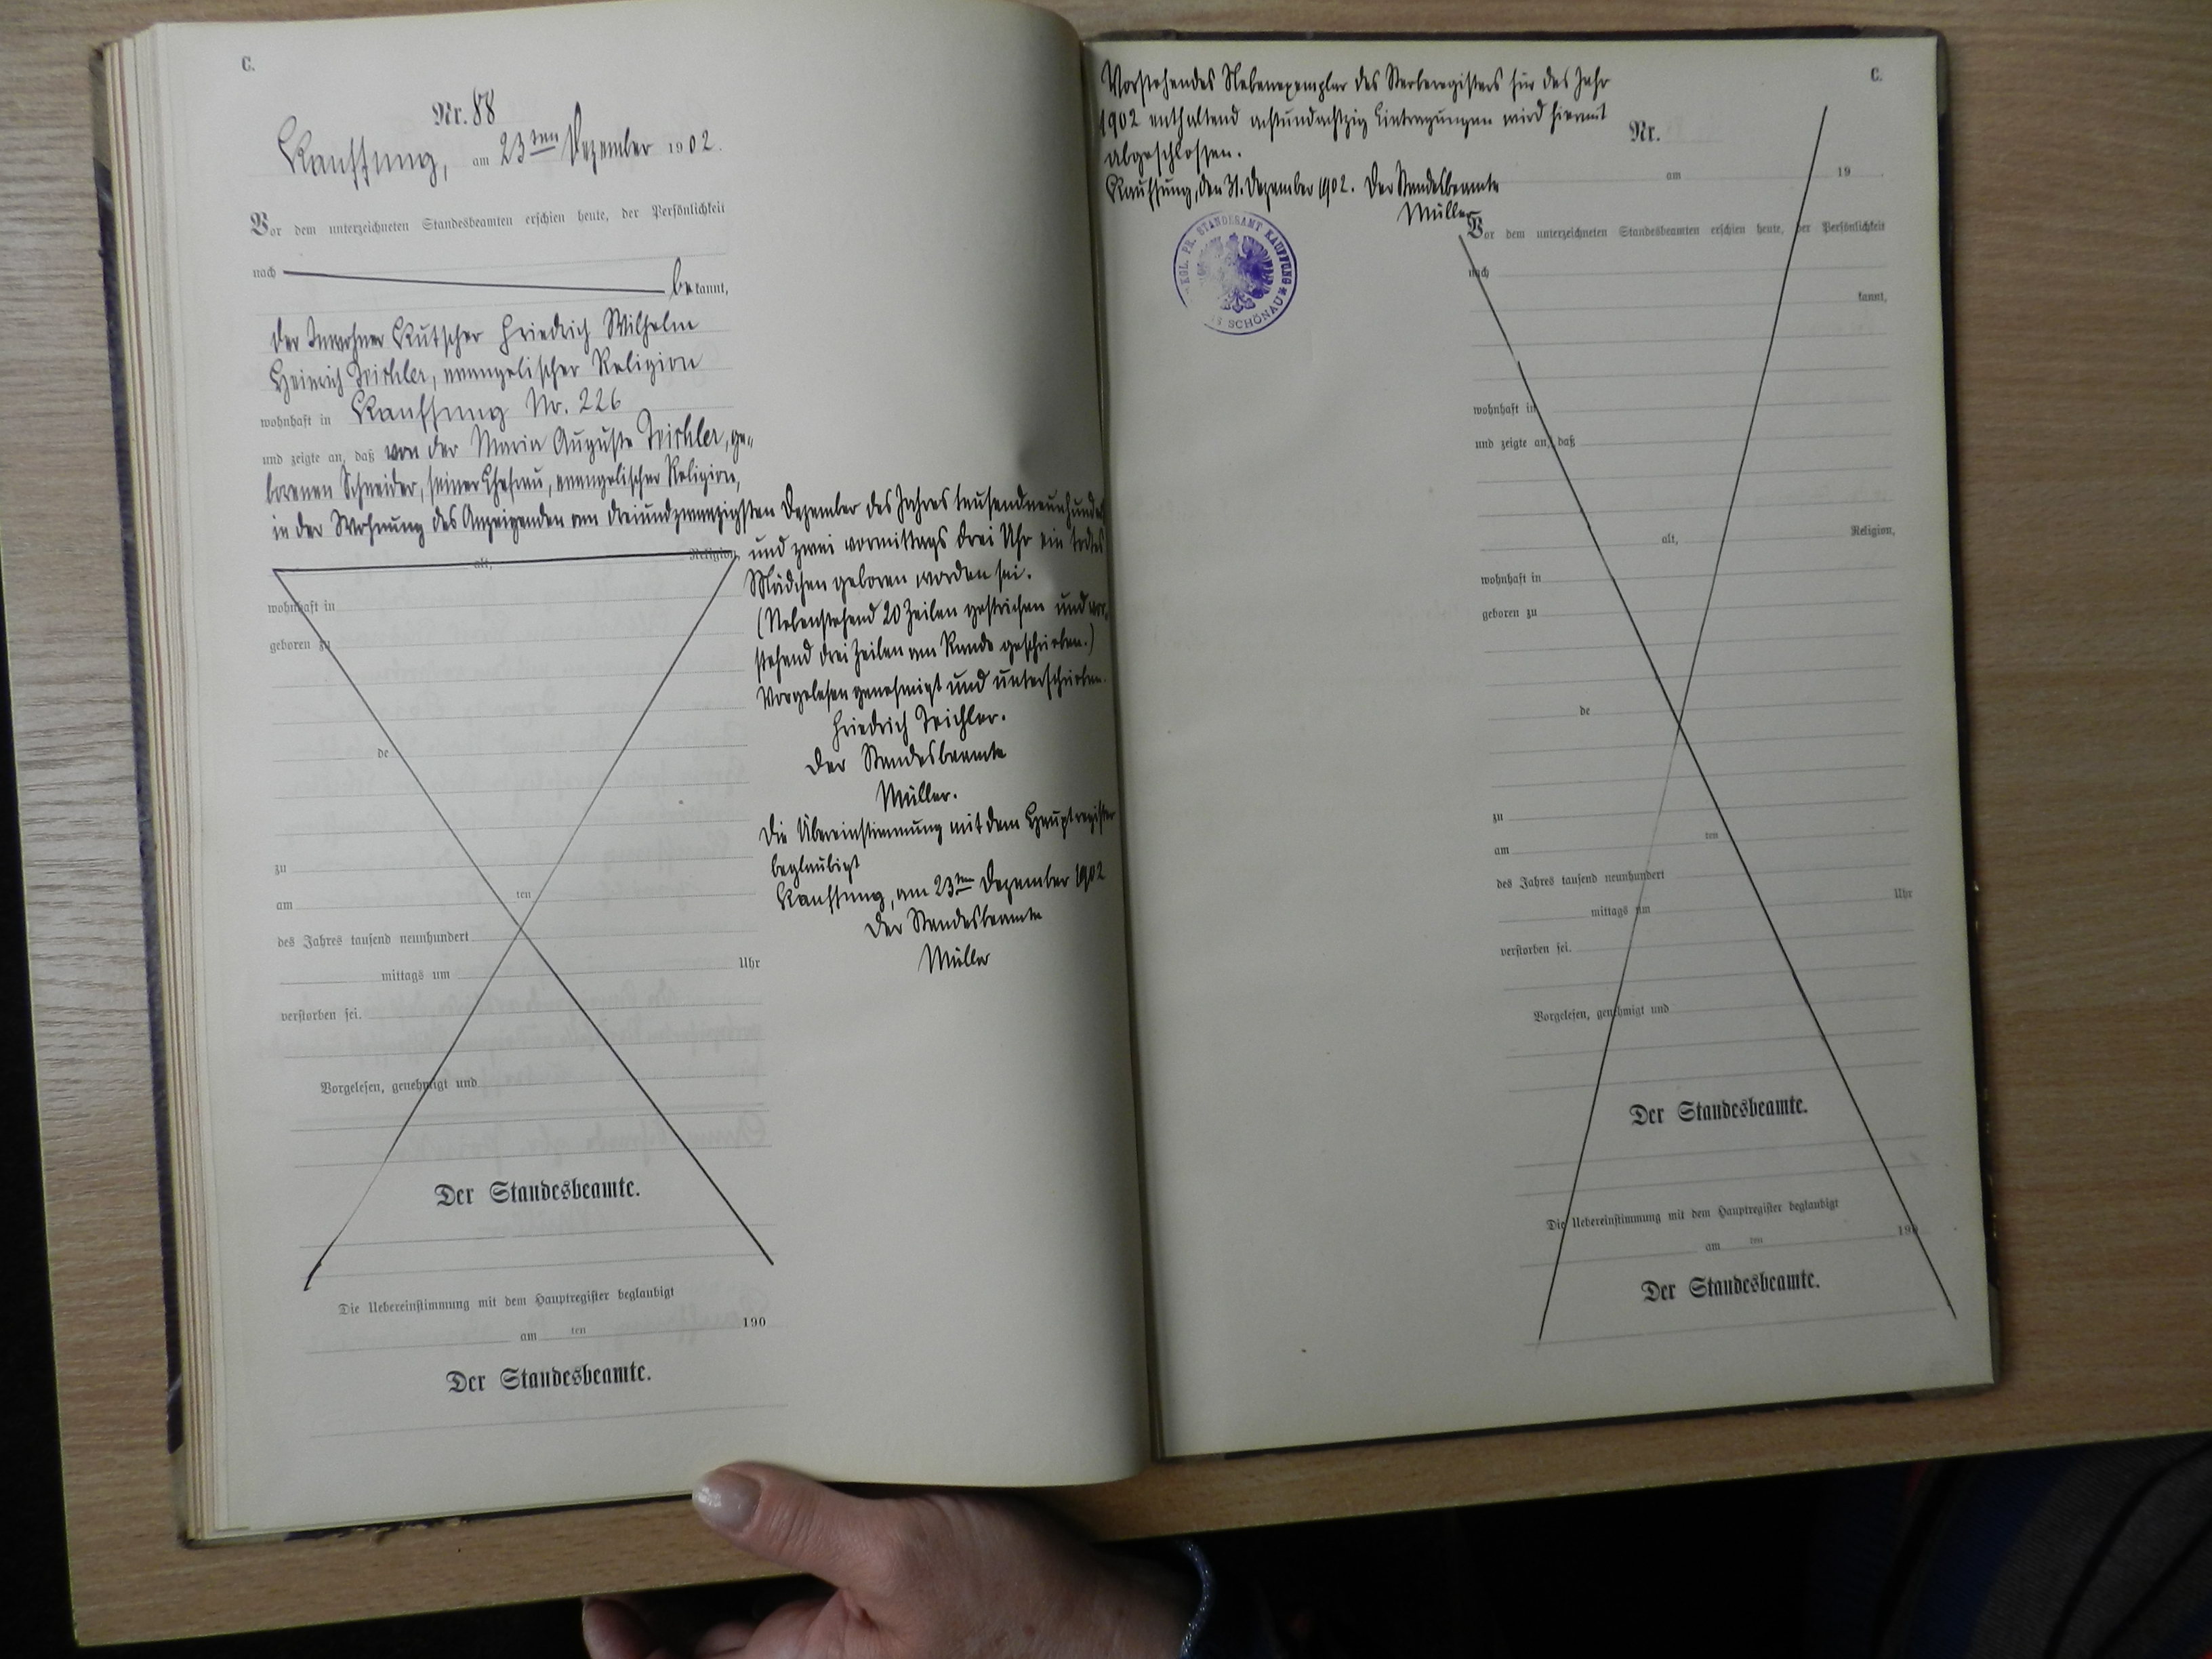 C.
Nr. 88
Kauffung, am 23ten Dezember 1902.
Vor dem unterzeichneten Standesbeamten erschien heute, der Persönlichkeit
nach bekannt,
der Inwohner Kutscher Friedrich Wilhelm
Heinrich Teichler, evangelischer Religion
wohnhaft in Kauffung Nr. 226
und zeigte an, daß von der Maria Auguste Teichler, ge-
borenen Schneider, seiner Ehefrau, evangelischer Religion,
in der Wohnung des Anzeigenden am dreiundzwanzigsten Dezember des Jahres tausendneunhundert
und zwei vormittags drei Uhr ein todtes
Mädchen geboren worden sei.
(Nebenstehend 20 Zeilen gestrichen und vor-
stehend drei Zeilen am Rande geschrieben.)
Vorgelesen genehmigt und unterschrieben.
Friedrich Teichler.
Der Standesbeamte
Müller.
Die Übereinstimmung mit dem Hauptregister
beglaubigt
Kauffung, am 23ten Dezember 1902
Der Standesbeamte
Müller
alt, Religion,
wohnhaft in
geboren zu
de
zu
am ten
des Jahres tausend neunhundert
mittags um Uhr
verstorben sei.
Vorgelesen, genehmigt und
Der Standesbeamte.
Die Uebereinstimmung mit dem Hauptregister beglaubigt
am ten 190
Der Standesbeamte.
Vorstehendes Nebenexemplar des Sterberegisters für das Jahr
1902 enthaltend achtundachtzig Eintragungen wird hiermit
abgeschlossen.
Kauffung, den 31. Dezember 1902. Der Standesbeamte
Müller
KGL. PR. STANDESAMT KAUFFUNG
SCHÖNAU
C.
Nr.
am 19 .
Vor dem unterzeichneten Standesbeamten erschien heute, der Persönlichkeit
nach
kannt,
wohnhaft in
und zeigte an, daß
alt, Religion,
wohnhaft in
geboren zu
de
zu
am ten
des Jahres tausend neunhundert
mittags um Uhr
verstorben sei.
Vorgelesen, genehmigt und
Der Standesbeamte.
Die Uebereinstimmung mit dem Hauptregister beglaubigt
am ten 190
Der Standesbeamte.